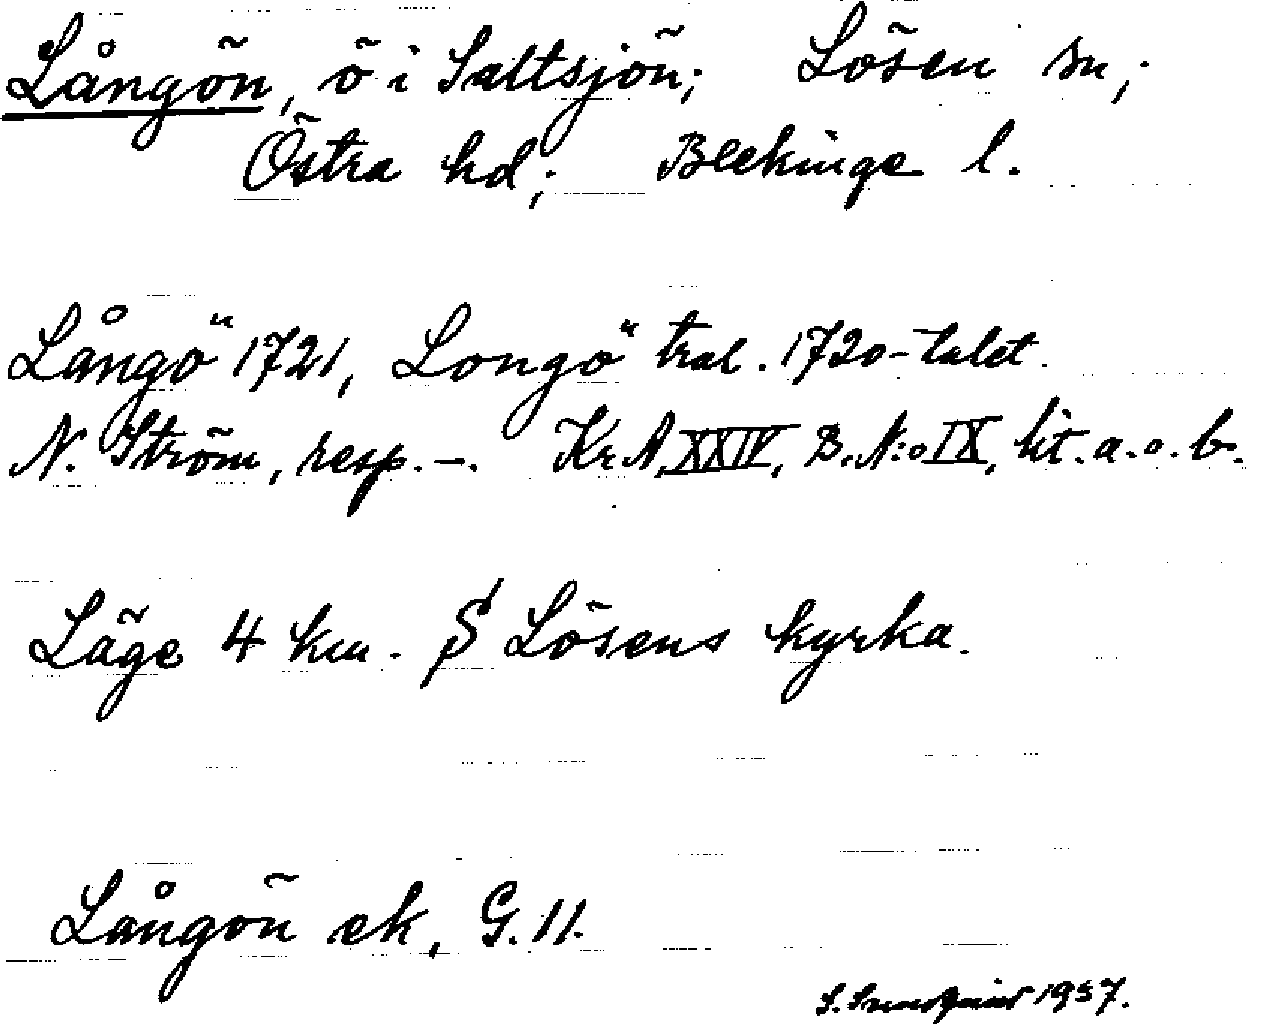 Långön, ö i Saltsjön; Lösen sn;
Östra hd; Blekinge l.
Långö" 1721, Longö" tral. 1720-talet.
N. Ström, resp. -. KrA, XXIV, B. N:o IX, lit. a. o. b.
Läge 4 km. S Lösens kyrka.
Långön ek, G. 11.
S. 1937.